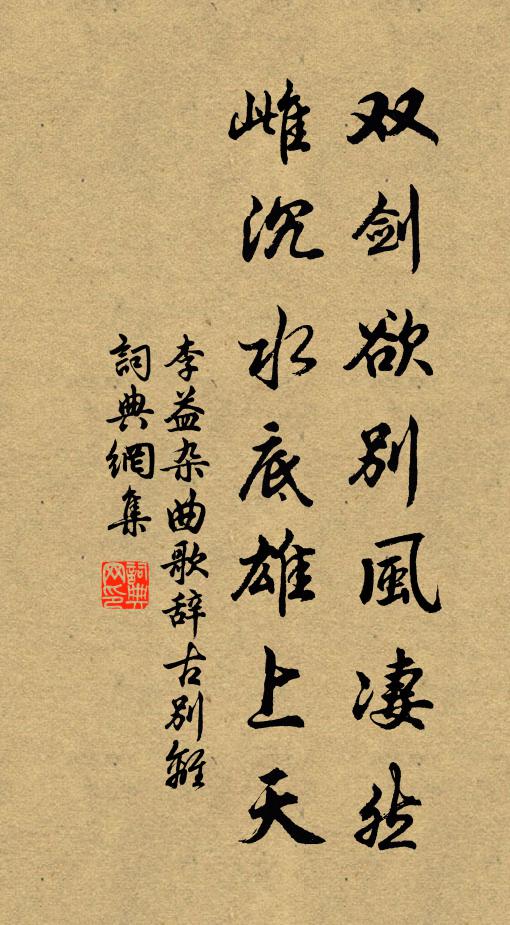 双剑欲别風凄然
雌沉水底雄上天
李益杂曲歌辞古别離
詞典網集
詞典网印